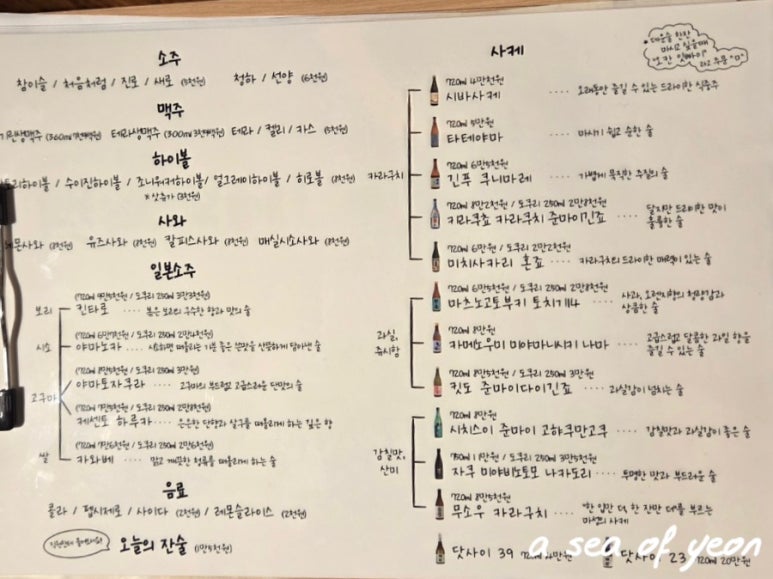 소주
참이슬 / 처음처럼 / 진로 / 새로 (5천원) 청하 / 선양 (6천원)
맥주
기린생맥주 (360ml 7천9백원) 테라생맥주 (300ml 3천9백원) 테라 / 켈리 / 카스 (5천원)
하이볼
토리하이볼 / 수이진하이볼 / 죠니워커하이볼 / 얼그레이하이볼 / 히로볼 (8천원)
※샷추가 (3천원)
사와
레몬사와 (8천원) 유즈사와 (8천원) 칼피스사와 (8천원) 매실시소사와 (8천원)
일본소주
보리
(720ml 9만5천원 / 도쿠리 250ml 3만3천원)
킨타로 ···· 볶은 보리의 구수한 향과 맛의 술
시소
(720ml 6만7천원 / 도쿠리 250ml 2만4천원)
야마노카 ···· 시소하면 떠올리는 기분 좋은 쓴맛을 산뜻하게 담아낸 술
고구마
(720ml 8만5천원 / 도쿠리 250ml 3만원)
야마토자쿠라 ···· 고구마의 부드럽고 고급스러운 단맛의 술
(720ml 7만5천원 / 도쿠리 250ml 2만8천원)
케센토 하루카 ···· 은은한 단향과 살구를 떠올리게 하는 깊은 향
쌀
(720ml 7만6천원 / 도쿠리 250ml 2만6천원)
카와베 ···· 맑고 깨끗한 청류를 떠올리게 하는 술
음료
콜라 / 펩시제로 / 사이다 (2천원) / 레몬슬라이스 (2천원)
오늘의 잔술 (1만5천원)
사케
마시고 싶을때
카라구치
720ml 4만천원
시바사케 ···· 오래동안 즐길 수 있는 드라이한 식중주
720ml 5만원
타테야마 ···· 마시기 쉽고 순한 술
720ml 6만5천원
긴푸 쿠니마레 ···· 가볍게 묵직한 추질의 술
720ml 8만2천원 / 도쿠리 250ml 2만8천원
키쿠쵸 카라구치 준마이긴죠 ···· 달지만 드라이한 맛이
훌륭한 술
720ml 6만원 / 도쿠리 250ml 2만2천원
미치사카리 혼죠 ···· 카라구치의 드라이한 매력이 있는 술
과실,
쥬시향
720ml 6만5천원 / 도쿠리 250ml 2만8천원
마츠노고토부키 토치기14 ···· 사과, 오렌지향의 청량감과
상큼한 술
720ml 8만원
카메노우미 미야마니시키 나마 ···· 고급스럽고 달콤한 과일 향을
즐길 수 있는 술
720ml 8만5천원 / 도쿠리 250ml 3만원
킷도 준마이다이긴죠 ···· 과실감이 넘치는 술
감칠맛,
산미
720ml 8만원
시치스이 준마이 고하쿠만고쿠 ···· 감칠맛과 과실감이 좋은 술
750ml 11만원 / 도쿠리 250ml 3만5천원
자쿠 미야비노토모 나카도리 ···· 투명한 맛과 부드러운 술
720ml 8만5천원
무소우 카라구치 ···· "한 입만 더, 한 잔만 더"를 부르는
마성의 사케
닷사이 39 720ml 14만원 닷사이 23 720ml 20만원
a sea of yeon